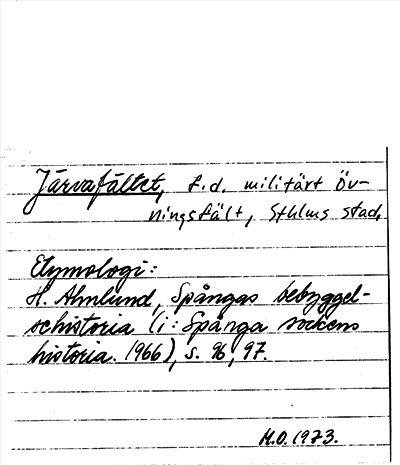 Järvafältet, f.d. militärt öv-
ningsfält, Sthlms stad.
Etymologi:
H. Almlund, Spångas bebyggel-
sehistoria (i: Spånga sockens
historia. 1966), s. 96, 97.
H.O. 1973.